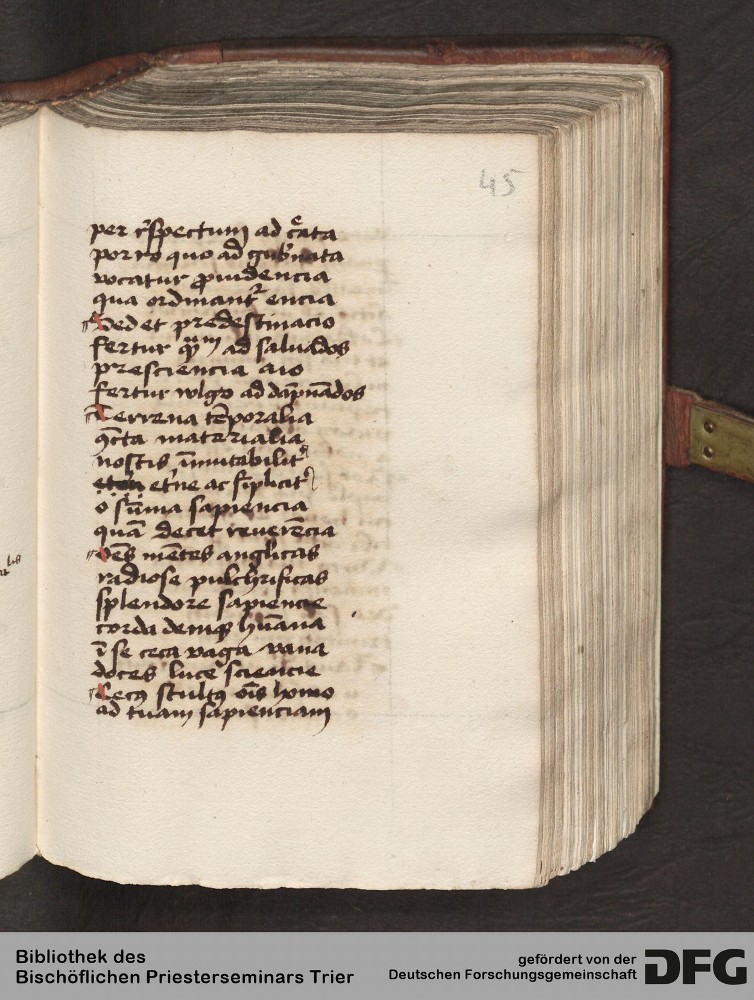 45
per r̾spectum ad c̾ata
porro quo ad gub̾nata
vocatur ꝓuidencia
qua ordinant᷑ encia
Sed et predestinacio
fertur ad saluādos
presciencia aio
fertur wlgo ad dāpnādos
Terrena tēporalia
ꝯcta materialia
nostis īmutabilit᷑
et̾ne ac sīplicit᷑
o sūma sapiencia
quā decet reuerēcia
mētes anglicas
radiose pulch̾rificas
splendore sapiencie
corda deniqꝫ hūana
ī se ceca vaga vana
doces luce sciencie
Cecꝰ stultꝰ oīs homo
ad tuam sapienciam
Bibliothek des
Bischöflichen Priesterseminars Trier
gefördert von der
Deutschen Forschungsgemeinschaft
DFG